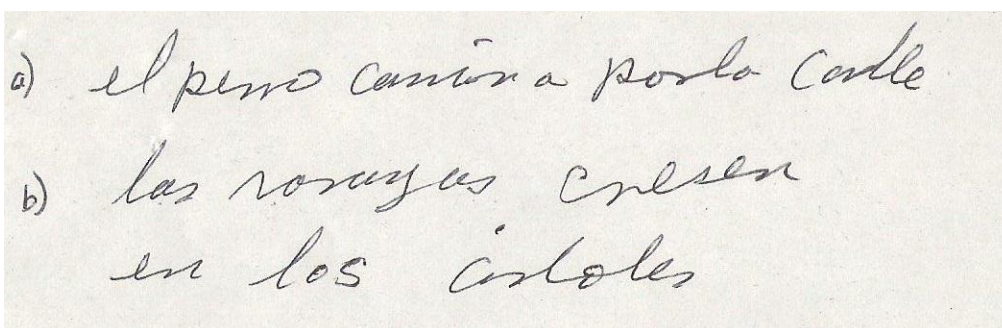 a) el perro camina por la calle
b) las naranjas cresen
en los árboles